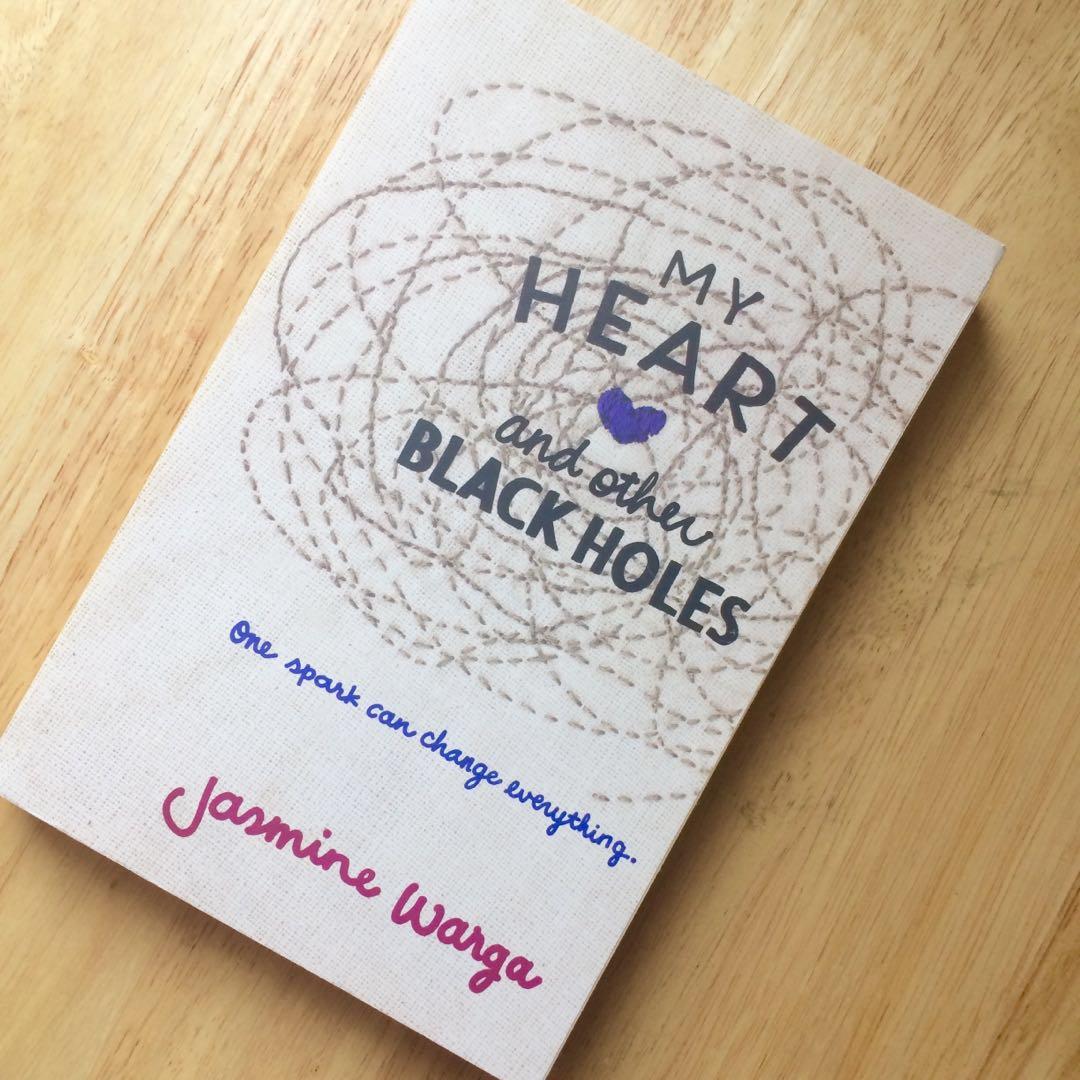 MY
HEART
and other
BLACK HOLES
One spark can change everything.
Jasmine Warga